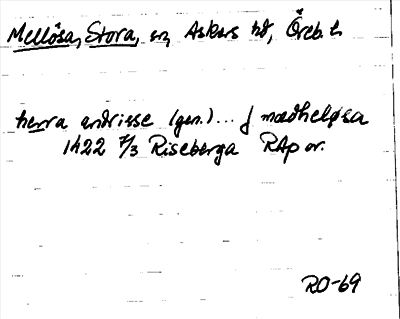 Mellösa, Stora, sn, Askers hd, Öreb. l.
herra andrisse (gen.) ... j mædheløsa
1422 7/3 Riseberga RAp or.
RO-69